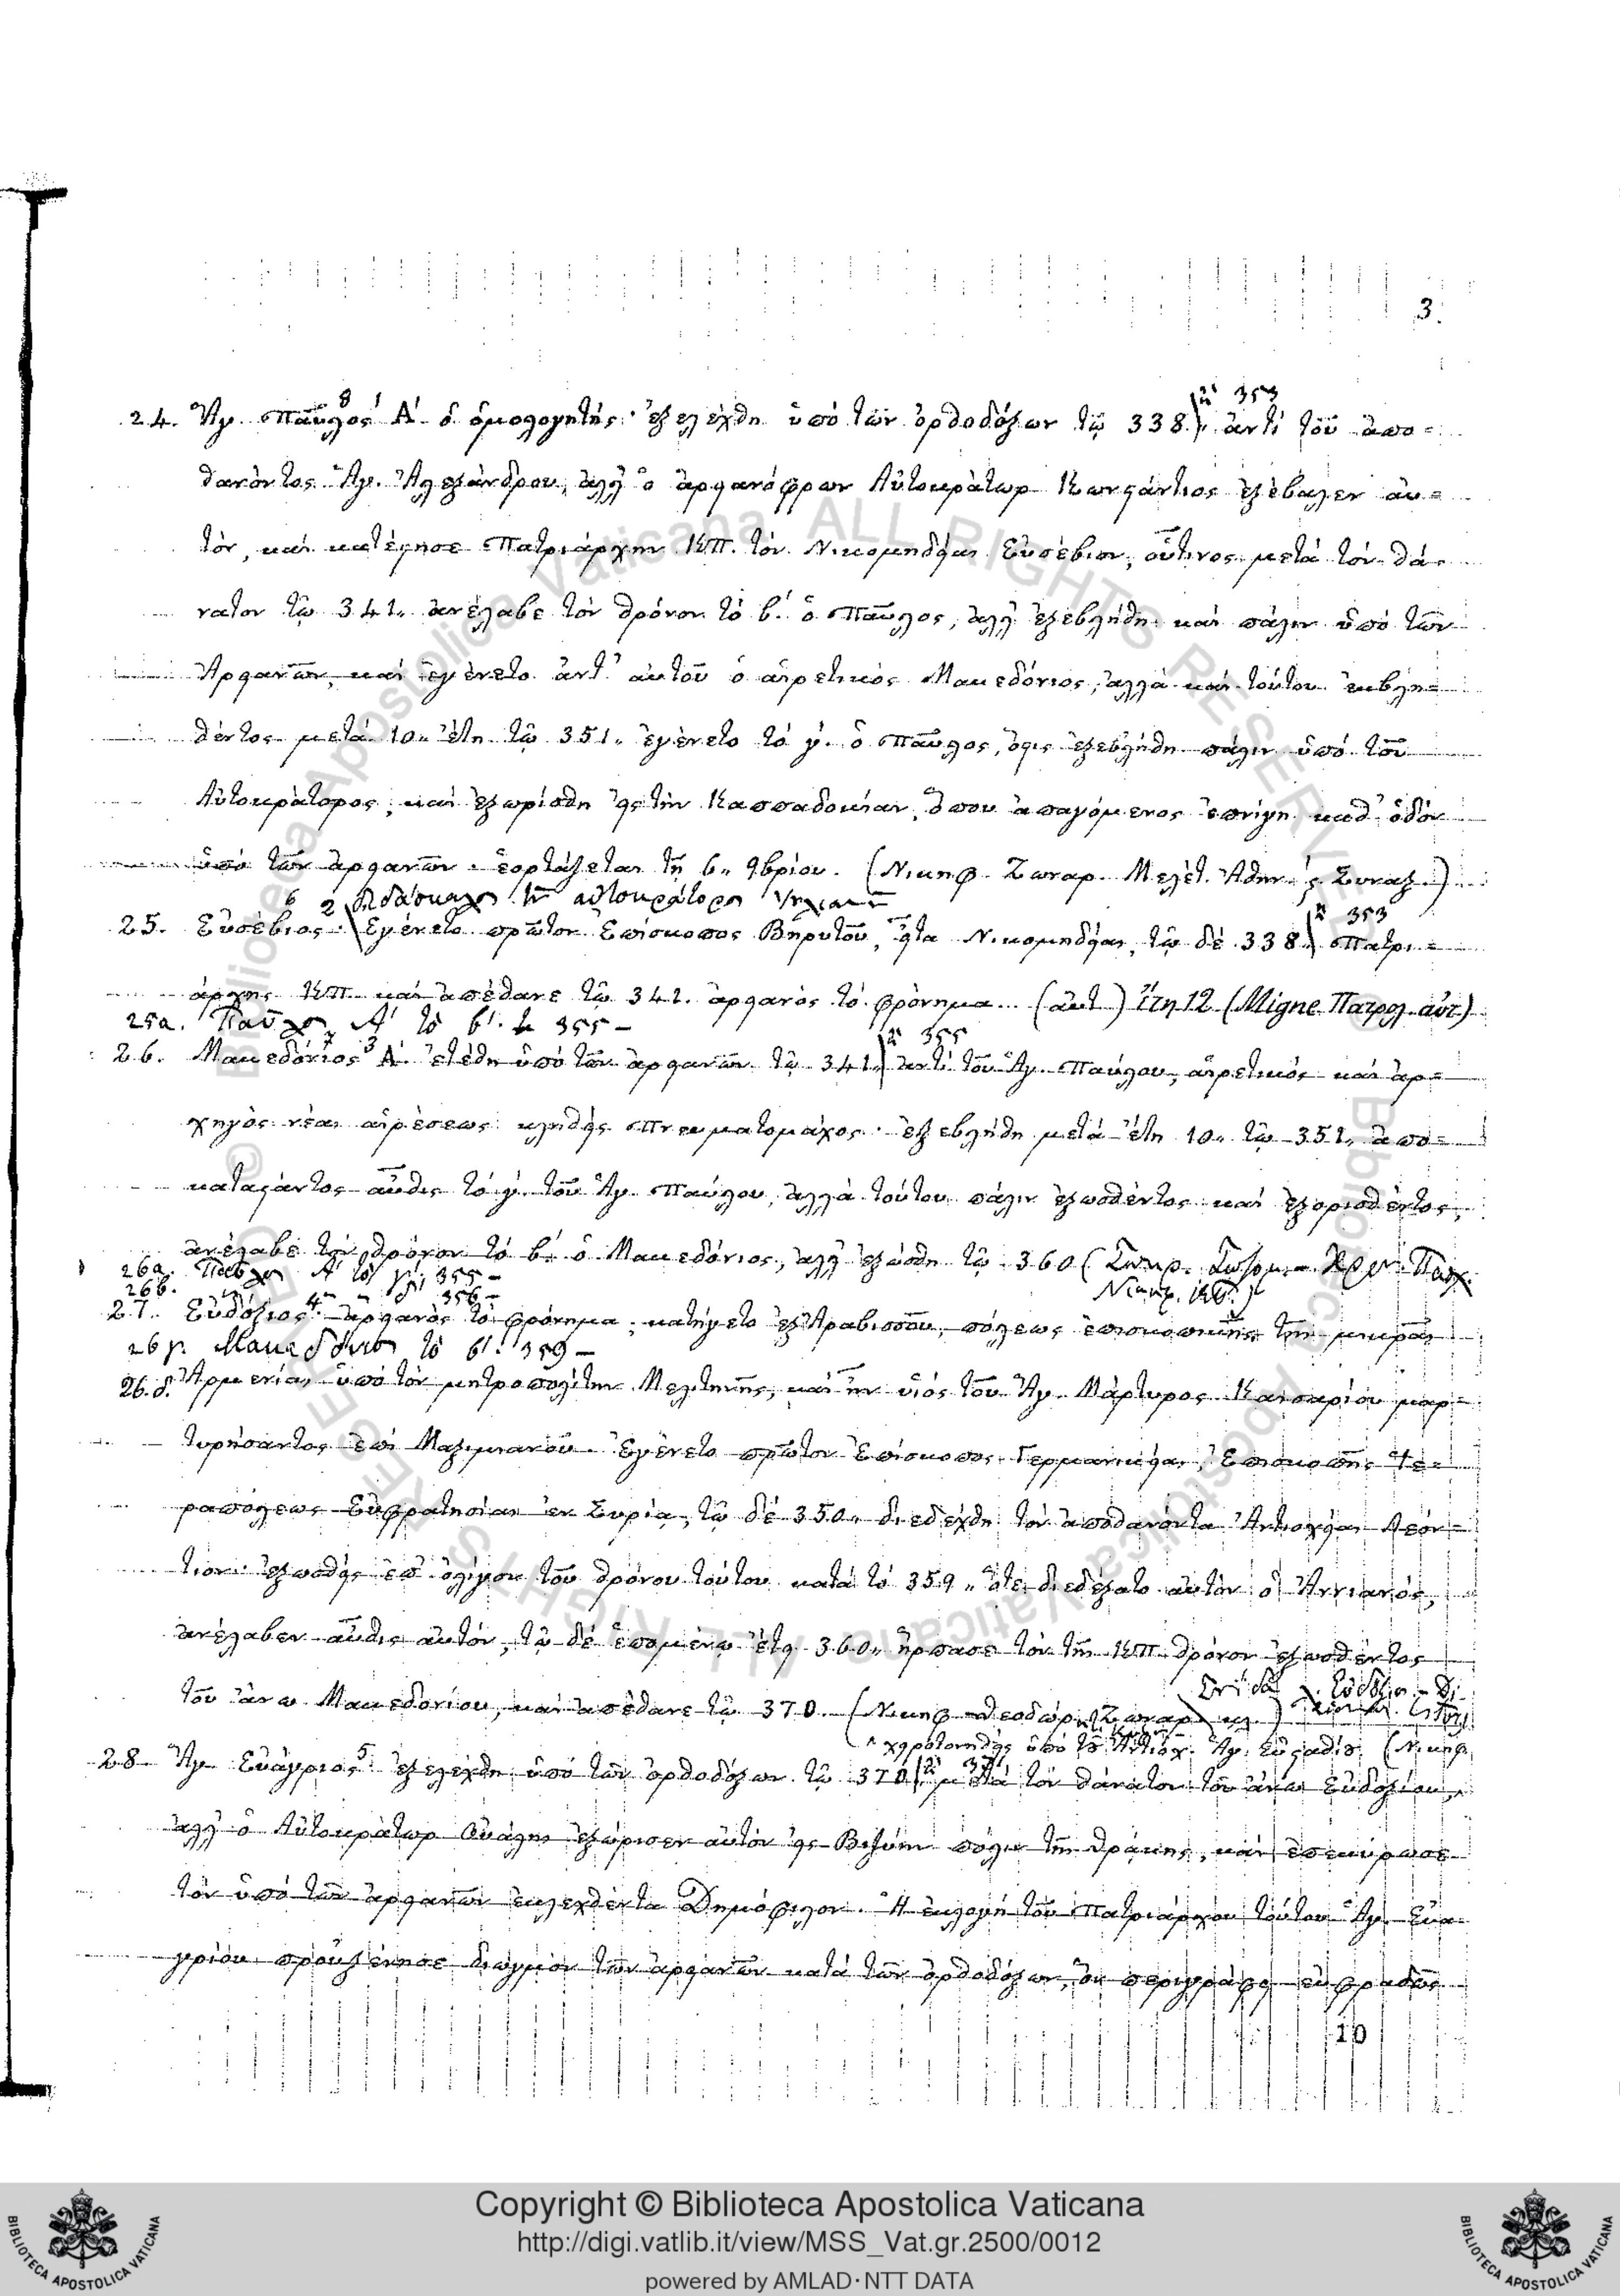 3.
ἢ 353
24. Ἅγ. Παῦλος Α΄. ὁ ὁμολογητής· ἐξελέχθη ὑπό τῶν ὀρθοδόξων τῷ 338. ἀντί τοῦ ἀπο=
θανόντος Ἁγ. Ἀλεξάνδρου, ἀλλ' ὁ ἀρειανόφρων Αὐτοκράτωρ Κωνστάντιος ἐξέβαλεν αὐ=
τόν, καί κατέστησε Πατριάρχην ΚΠ. τόν Νικομηδείας Εὐσέβιον, οὗτινος μετά τόν θά-
νατον τῷ 341. ἀνέλαβε τόν θρόνον τό β΄. ὁ Παῦλος, ἀλλ' ἐξεβλήθη καί πάλιν ὑπό τῶν
Ἀρειανῶν, καί ἐγένετο ἀντ' αὐτοῦ ὁ αἱρετικός Μακεδόνιος, ἀλλά καί τούτου ἐκβλη=
θέντος μετά 10. ἔτη τῷ 351. ἐγένετο τό γ΄. ὁ Παῦλος, ὅστις ἐξεβλήθη πάλιν ὑπό τοῦ
Αὐτοκράτορος, καί ἐξωρίσθη εἰς τήν Καππαδοκίαν, ὅπου ἀπαγόμενος ἐπνίγη καθ' ὁδόν
ὑπό τῶν ἀρειανῶν. ἑορτάζεται τῇ 6. 9βρίου. (Νικηφ. Ζωναρ. Μελέτ. Ἀθην. ς Συναξ.)
διδάσκαλος τοῦ αὐτοκράτορος
ἢ 353
25. Εὐσέβιος. Ἐγένετο πρῶτον Ἐπίσκοπος Βηρυτοῦ, εἶτα Νικομηδείας, τῷ δέ 338. Πατρι=
άρχης ΚΠ. καί ἀπέθανε τῷ 341. ἀρειανός τό φρόνημα. (αὐτ) ἔτη 12 (Migne Πατρολ. αὐτ)
25α. Παῦλος Α΄ τό β΄. 355 –
ἢ 355
26. Μακεδόνιος Α΄. ἐτέθη ὑπό τῶν ἀρειανῶν τῷ 341. ἀντί τοῦ Ἁγ. Παύλου, αἱρετικός καί ἀρ=
χηγός νέας αἱρέσεως κληθείς Πνευματομάχος. ἐξεβλήθη μετά ἔτη 10. τῷ 351. ἀπο=
καταστάντος αὖθις τό γ΄. τοῦ Ἁγ. Παύλου, ἀλλά τούτου πάλιν ἐξωσθέντος καί ἐξορισθέντος,
ἀνέλαβε τόν θρόνον τό β΄. ὁ Μακεδόνιος, ἀλλ' ἐξώσθη τῷ 360 (Σωκρ. Σωζομ. Χρον. Πασχ.
26α. Παῦλος Α΄ τό γ΄. 355 –
26b. 356 –
27. Εὐδόξιος. ἀρειανός τό φρόνημα, κατήγετο ἐξ Ἀραβισσοῦ, πόλεως ἐπισκοπικῆς τῆς μικρᾶς
26γ. Μακεδόνιος τό β΄. 359 –
26.δ. Ἀρμενίας ὑπό τόν μητροπολίτην Μελιτηνῆς, καί ἦν υἱός τοῦ Ἁγ. Μάρτυρος Καισαρίου μαρ=
τυρήσαντος ἐπί Μαξιμιανοῦ. Ἐγένετο πρῶτον Ἐπίσκοπος Γερμανικείας, Ἐπισκοπῆς Ἱε=
ραπόλεως Εὐφρατησίας ἐν Συρίᾳ, τῷ δέ 350. διεδέχθη τόν ἀποθανόντα Ἀντιοχείας Λεόν=
τιον. ἐξωσθείς ἐπ' ὀλίγον τοῦ θρόνου τούτου κατά τό 359. ὅτε διεδέξατο αὐτόν ὁ Ἀννιανός,
ἀνέλαβεν αὖθις αὐτόν, τῷ δέ ἑπομένῳ ἔτει 360. ἥρπασε τόν τῆς ΚΠ. θρόνον ἐξωσθέντος
τοῦ ἄνω Μακεδονίου, καί ἀπέθανε τῷ 370. (Νικηφ. Θεοδώρ. Ζωναρ.
χειροτονηθείς ὑπό τοῦ Ἀντιοχ. Ἁγ. Εὐσταθίου (Νικηφ.
28. Ἅγ. Εὐάγριος. ἐξελέχθη ὑπό τῶν ὀρθοδόξων τῷ 370. μετά τόν θάνατον τοῦ ἄνω Εὐδοξίου,
ἀλλ' ὁ Αὐτοκράτωρ Οὐάλης ἐξώρισεν αὐτόν εἰς Βιζύην πόλιν τῆς Θράκης, καί ἐπεκύρωσε
τόν ὑπό τῶν ἀρειανῶν ἐκλεχθέντα Δημόφιλον. Ἡ ἐκλογή τοῦ Πατριάρχου τούτου Ἁγ. Εὐα-
γρίου προὐξένησε διωγμόν τῶν ἀρειανῶν κατά τῶν ὀρθοδόξων, ὅν περιγράφει εὐφραδῶς
10
Copyright © Biblioteca Apostolica Vaticana
http://digi.vatlib.it/view/MSS_Vat.gr.2500/0012
powered by AMLAD·NTT DATA